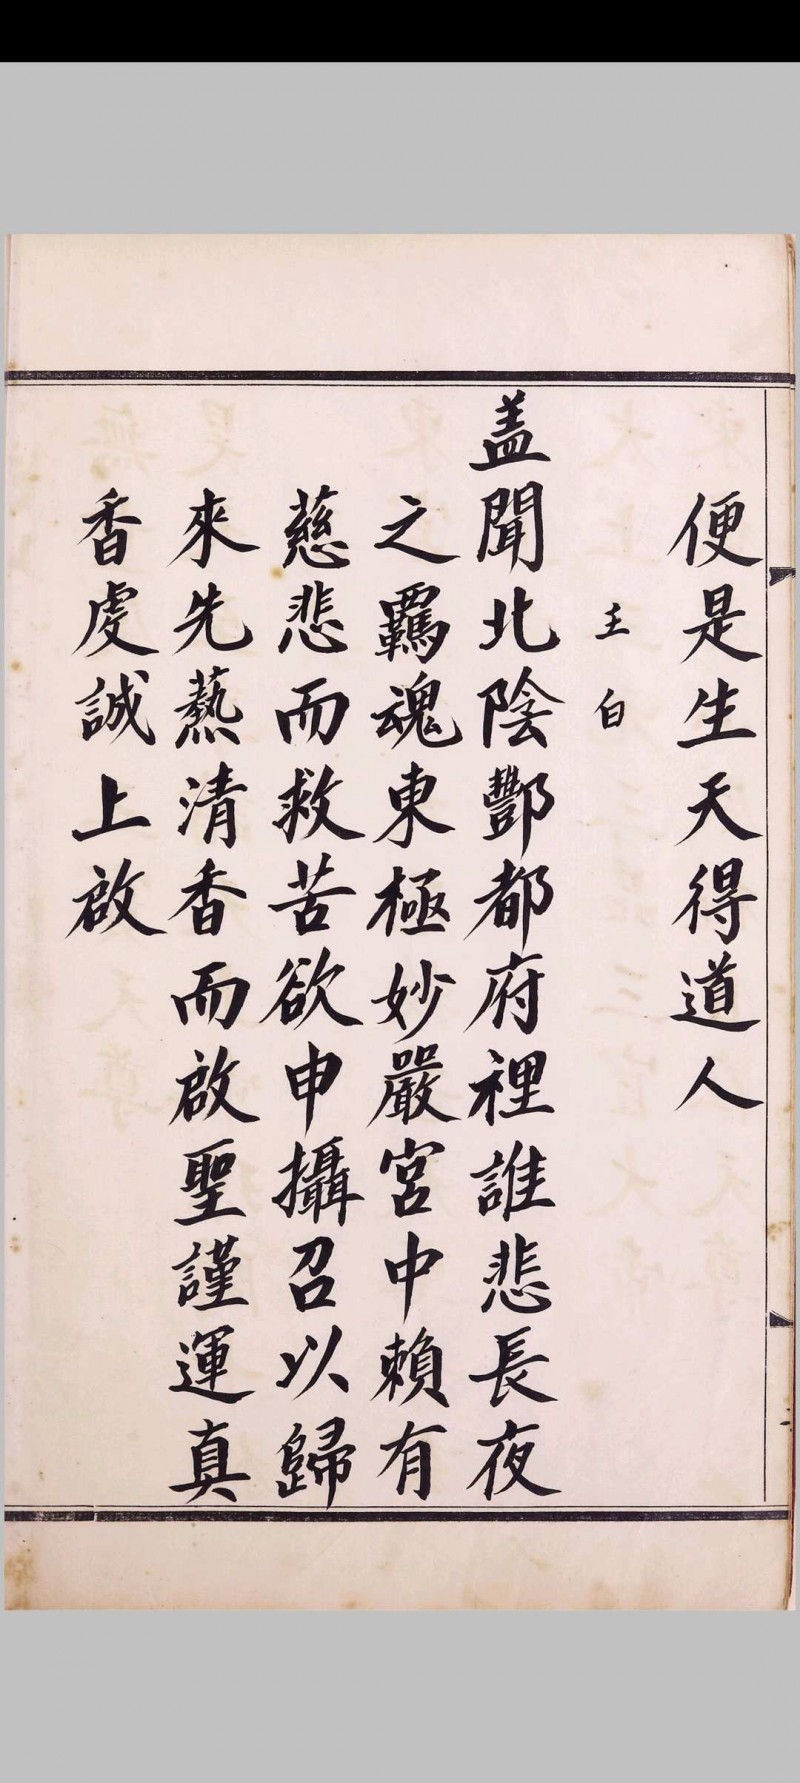 便是生天得道人
主白
盖聞北陰酆都府裡誰悲長夜
之羈魂東極妙嚴宮中賴有
慈悲而救苦欲申攝召以歸
來先爇清香而啟聖謹運真
香虔誠上啟